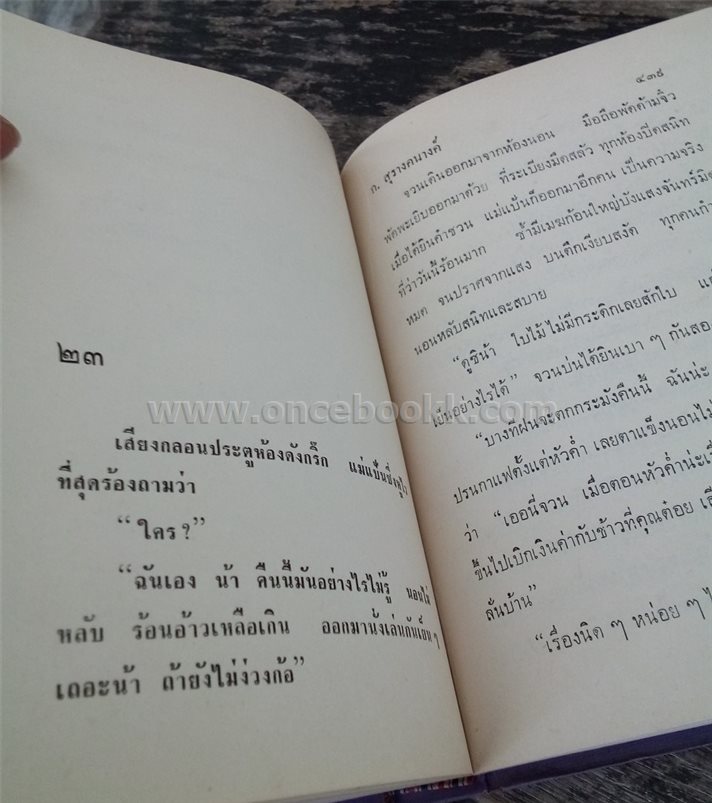 ๒๓
เสียงกลอนประตูห้องดังกริ๊ก แม่แป้นซึ่ง
ที่สุดร้องถามว่า
“ใคร?”
“ฉันเอง น้า คืนนี้มันอย่างไรไม่รู้ นอนไม่
หลับ ร้อนอ้าวเหลือเกิน ออกมานั่งเล่นกันเย็น ๆ
เถอะน้า ถ้ายังไม่ง่วงก้อ”
๔๓๙
ก. สุรางคนางค์
จวนเดินออกมาจากห้องนอน มือถือพัดด้ามจิ้ว
พัดพะเยิบออกมาด้วย ที่ระเบียงมืดสลัว ทุกห้องปิดสนิท
เมื่อได้ยินคำชวน แม่แป้นก็ออกมาอีกคน เป็นความจริง
ที่ว่าวันนี้ร้อนมาก ซ้ำมีเมฆก้อนใหญ่บังแสงจันทร์มิด
หมด จนปราศจากแสง บนตึกเงียบสงัด ทุกคน
นอนหลับสนิทและสบาย
“ดูซิน้า ใบไม้ไม่มีกระดิกเลยสักใบ
เย็นอย่างไรได้” จวนบ่นได้ยินเบา ๆ กันสอง
“บางทีฝนจะตกกระมังคืนนี้ ฉันน่ะ
ปรนกาแฟตั้งแต่หัวค่ำ เลยตาแข็งนอนไม่
ว่า “เออนี่จวน เมื่อตอนหัวค่ำน่ะ
ขึ้นไปเบิกเงินค่ากับข้าวที่คุณต๋อย
ลั่นบ้าน”
“เรื่องนิด ๆ หน่อย ๆ
www.oncebookk.com